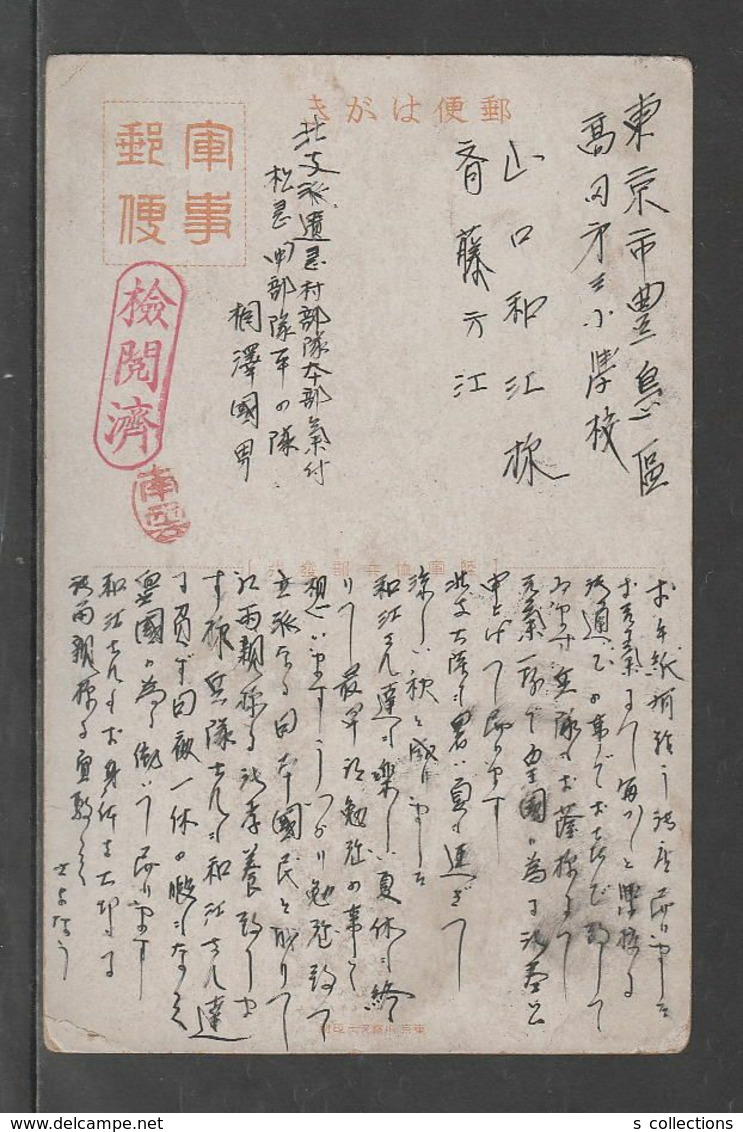 郵便はがき
軍事
郵便
檢閲濟
南雲
東京市豊島區
高田第三小學校
山口和江様
斉藤方江
北支派遣 村部隊本部氣付
松 部隊 の隊
相澤國男
お手紙有難う御座居ました
お元氣にて 學校に
御通ひの事でお喜び致して
兵隊もお蔭様にて
元氣一杯で皇國の為に御奉公
申上げて居ります
北支大陸も暑い夏も過ぎて
涼しい秋と成りました
和江さん達も楽しい夏休も終
りて最早御勉強の事と
想ひます しつかり勉強致して
立派なる日本國民と成りて
御両親様に御孝養致しま
す様 兵隊さんも和江さん達
に負けず 一休の暇もなく
皇國の為に働いて居ります
和江さんもお身体を大切に
御両親様に宜敷く
さよなら
s collections